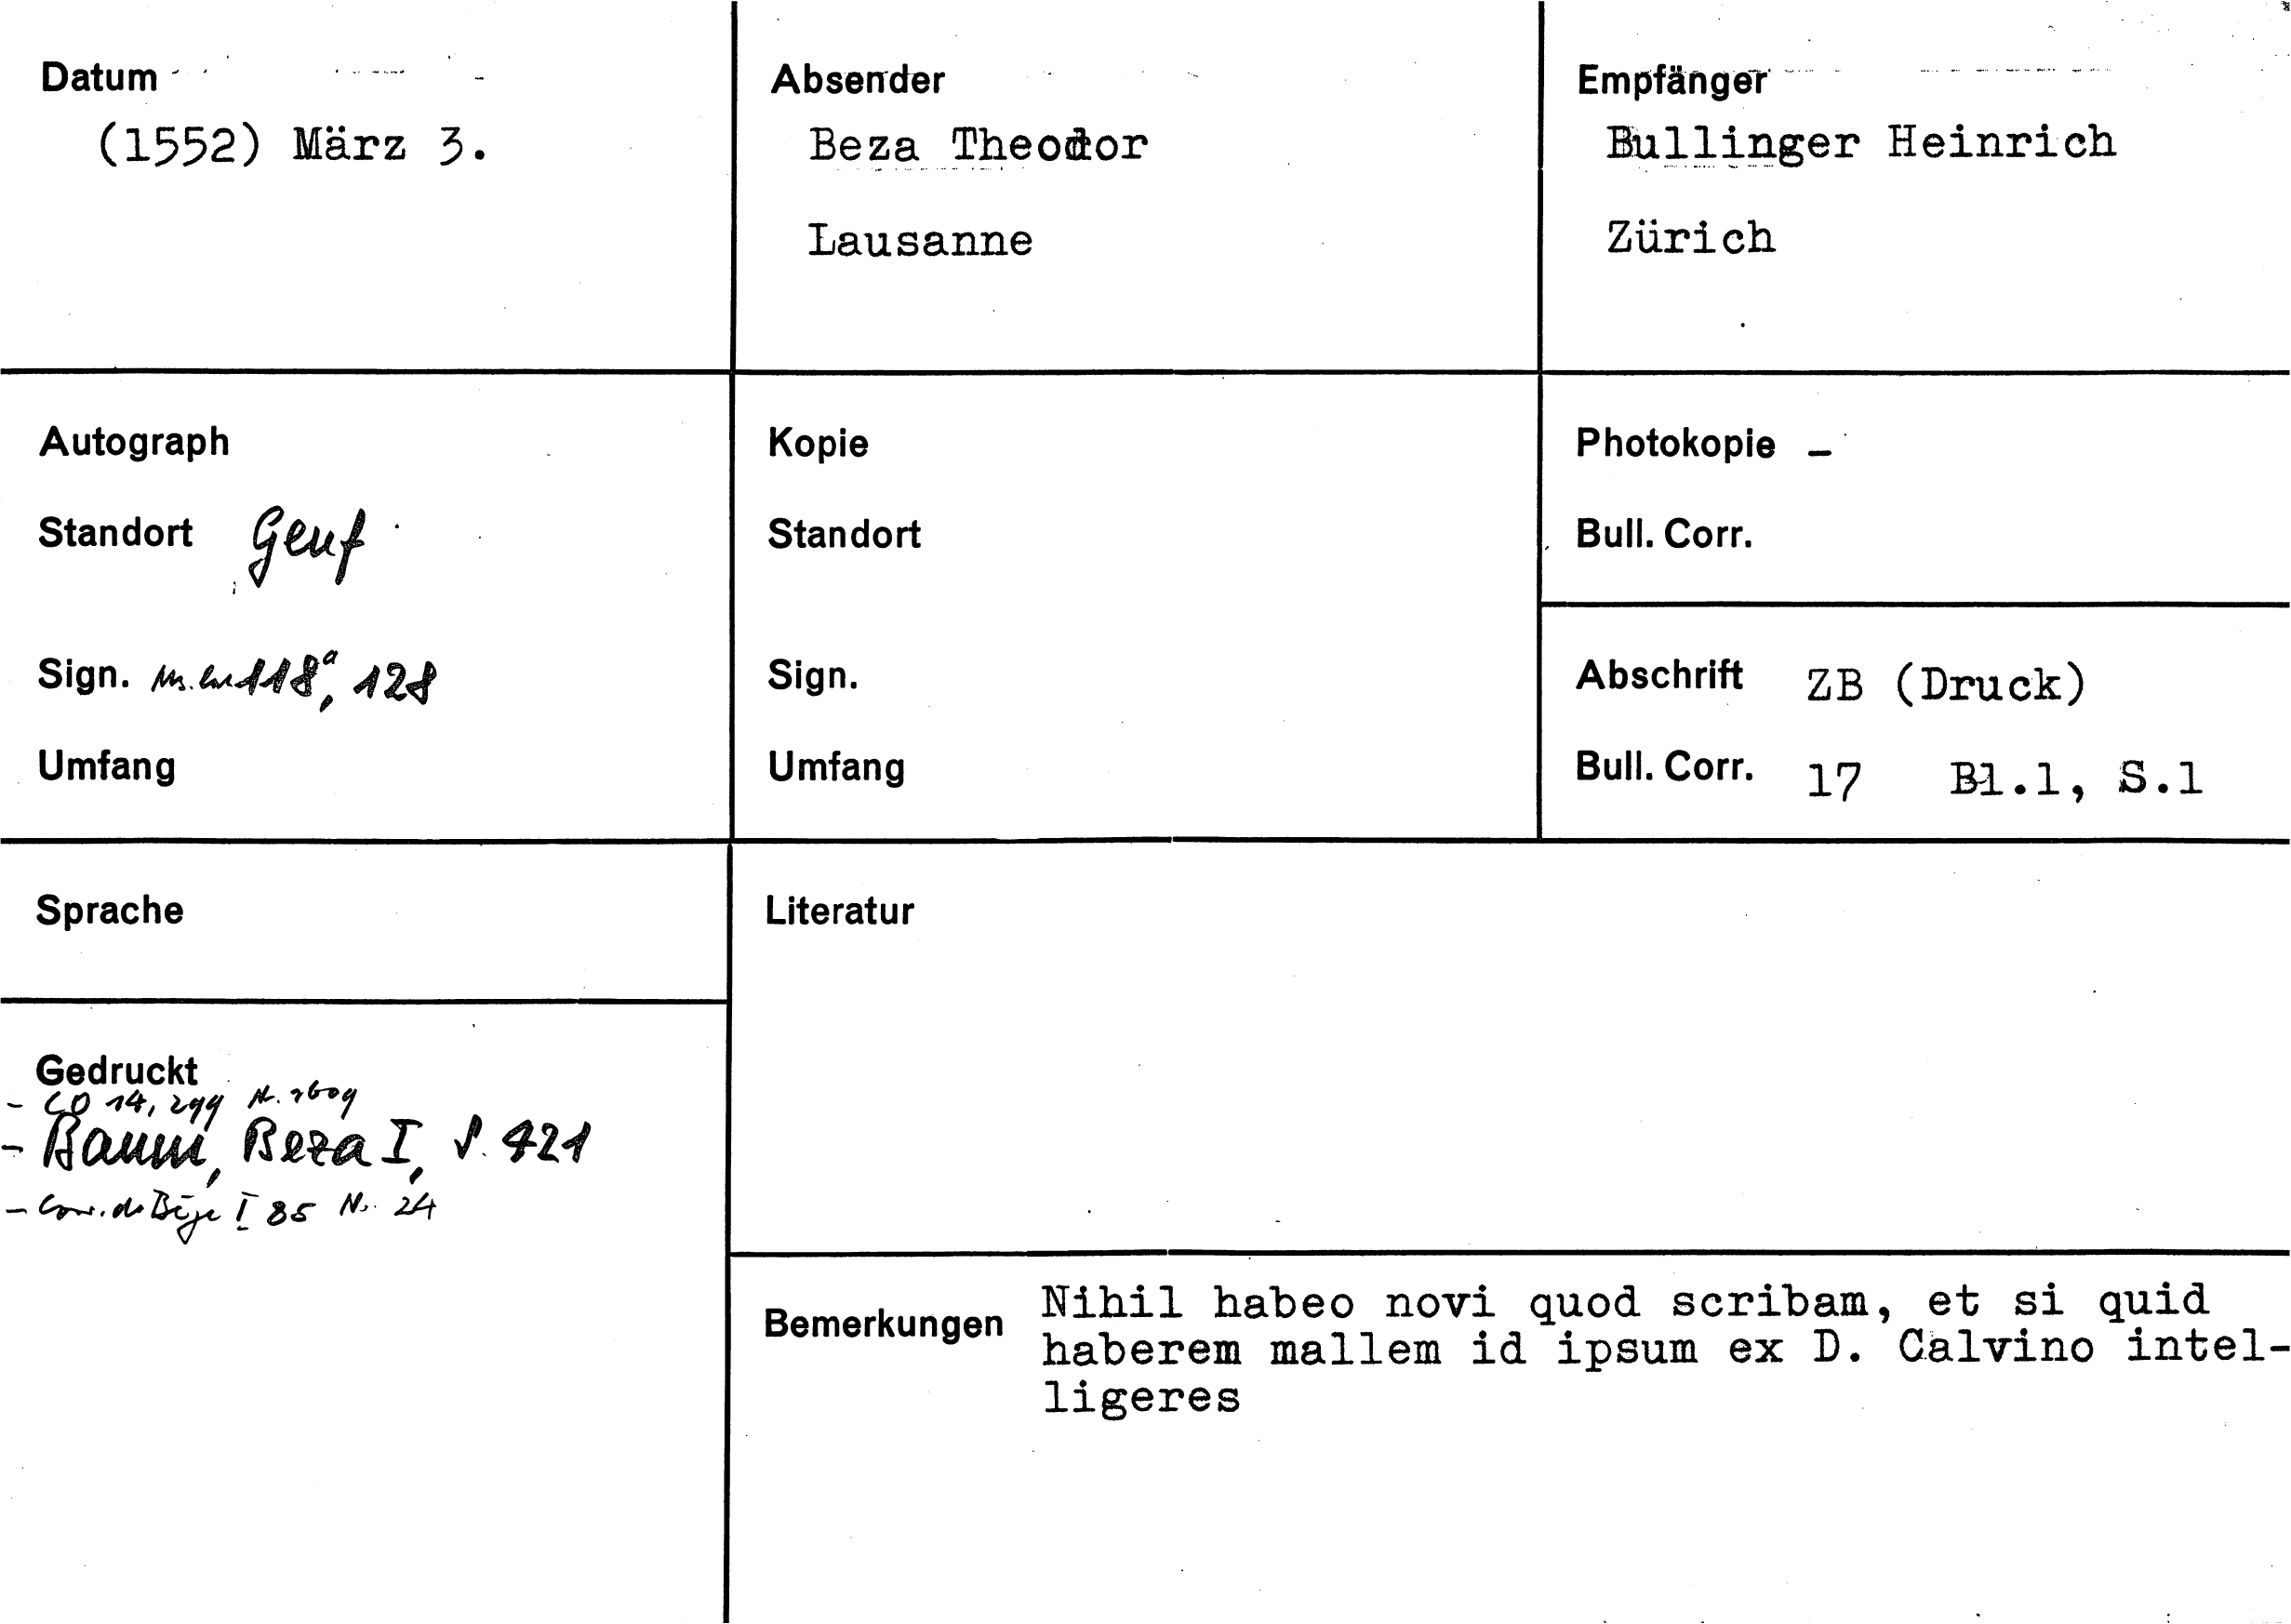 Datum
(1552) März 3.
Absender
Beza Theodor
Lausanne
Empfänger
Bullinger Heinrich
Zürich
Autograph
Standort Genf
Sign. Ms. lat 118a, 128
Umfang
Kopie
Standort
Sign.
Umfang
Photokopie -
Bull. Corr.
Abschrift ZB (Druck)
Bull. Corr. 17 Bl.1, S.1
Sprache
Gedruckt
- CO 14, 299 N. 1609
- Baum, Beza I, S. 421
- Corr. de Bèze I 85 N. 24
Literatur
Bemerkungen
Nihil habeo novi quod scribam, et si quid
haberem mallem id ipsum ex D. Calvino intel-
ligeres